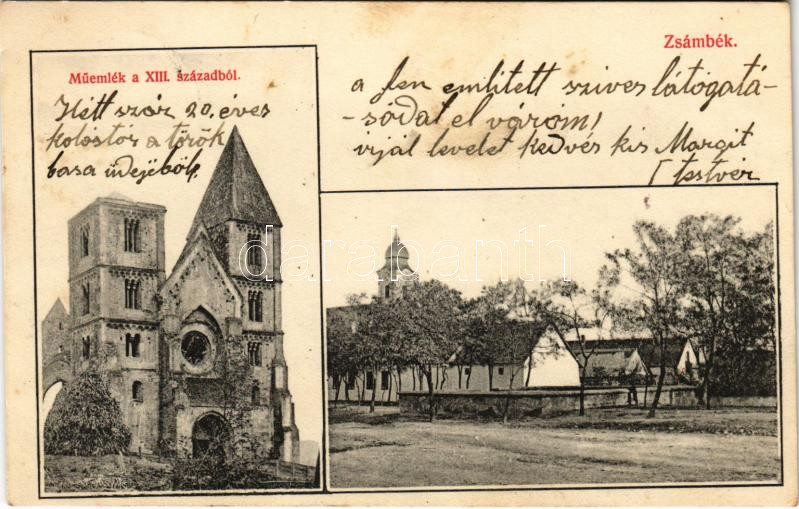 Műemlék a XIII. századból.
Hétt száz 20. éves
kolostor a török
basa idejéböl,
Zsámbék.
a fen emlitett szives látogatá-
-sódat el várom!
irjál levelet kedvés kis Margit
testvér
darabanth